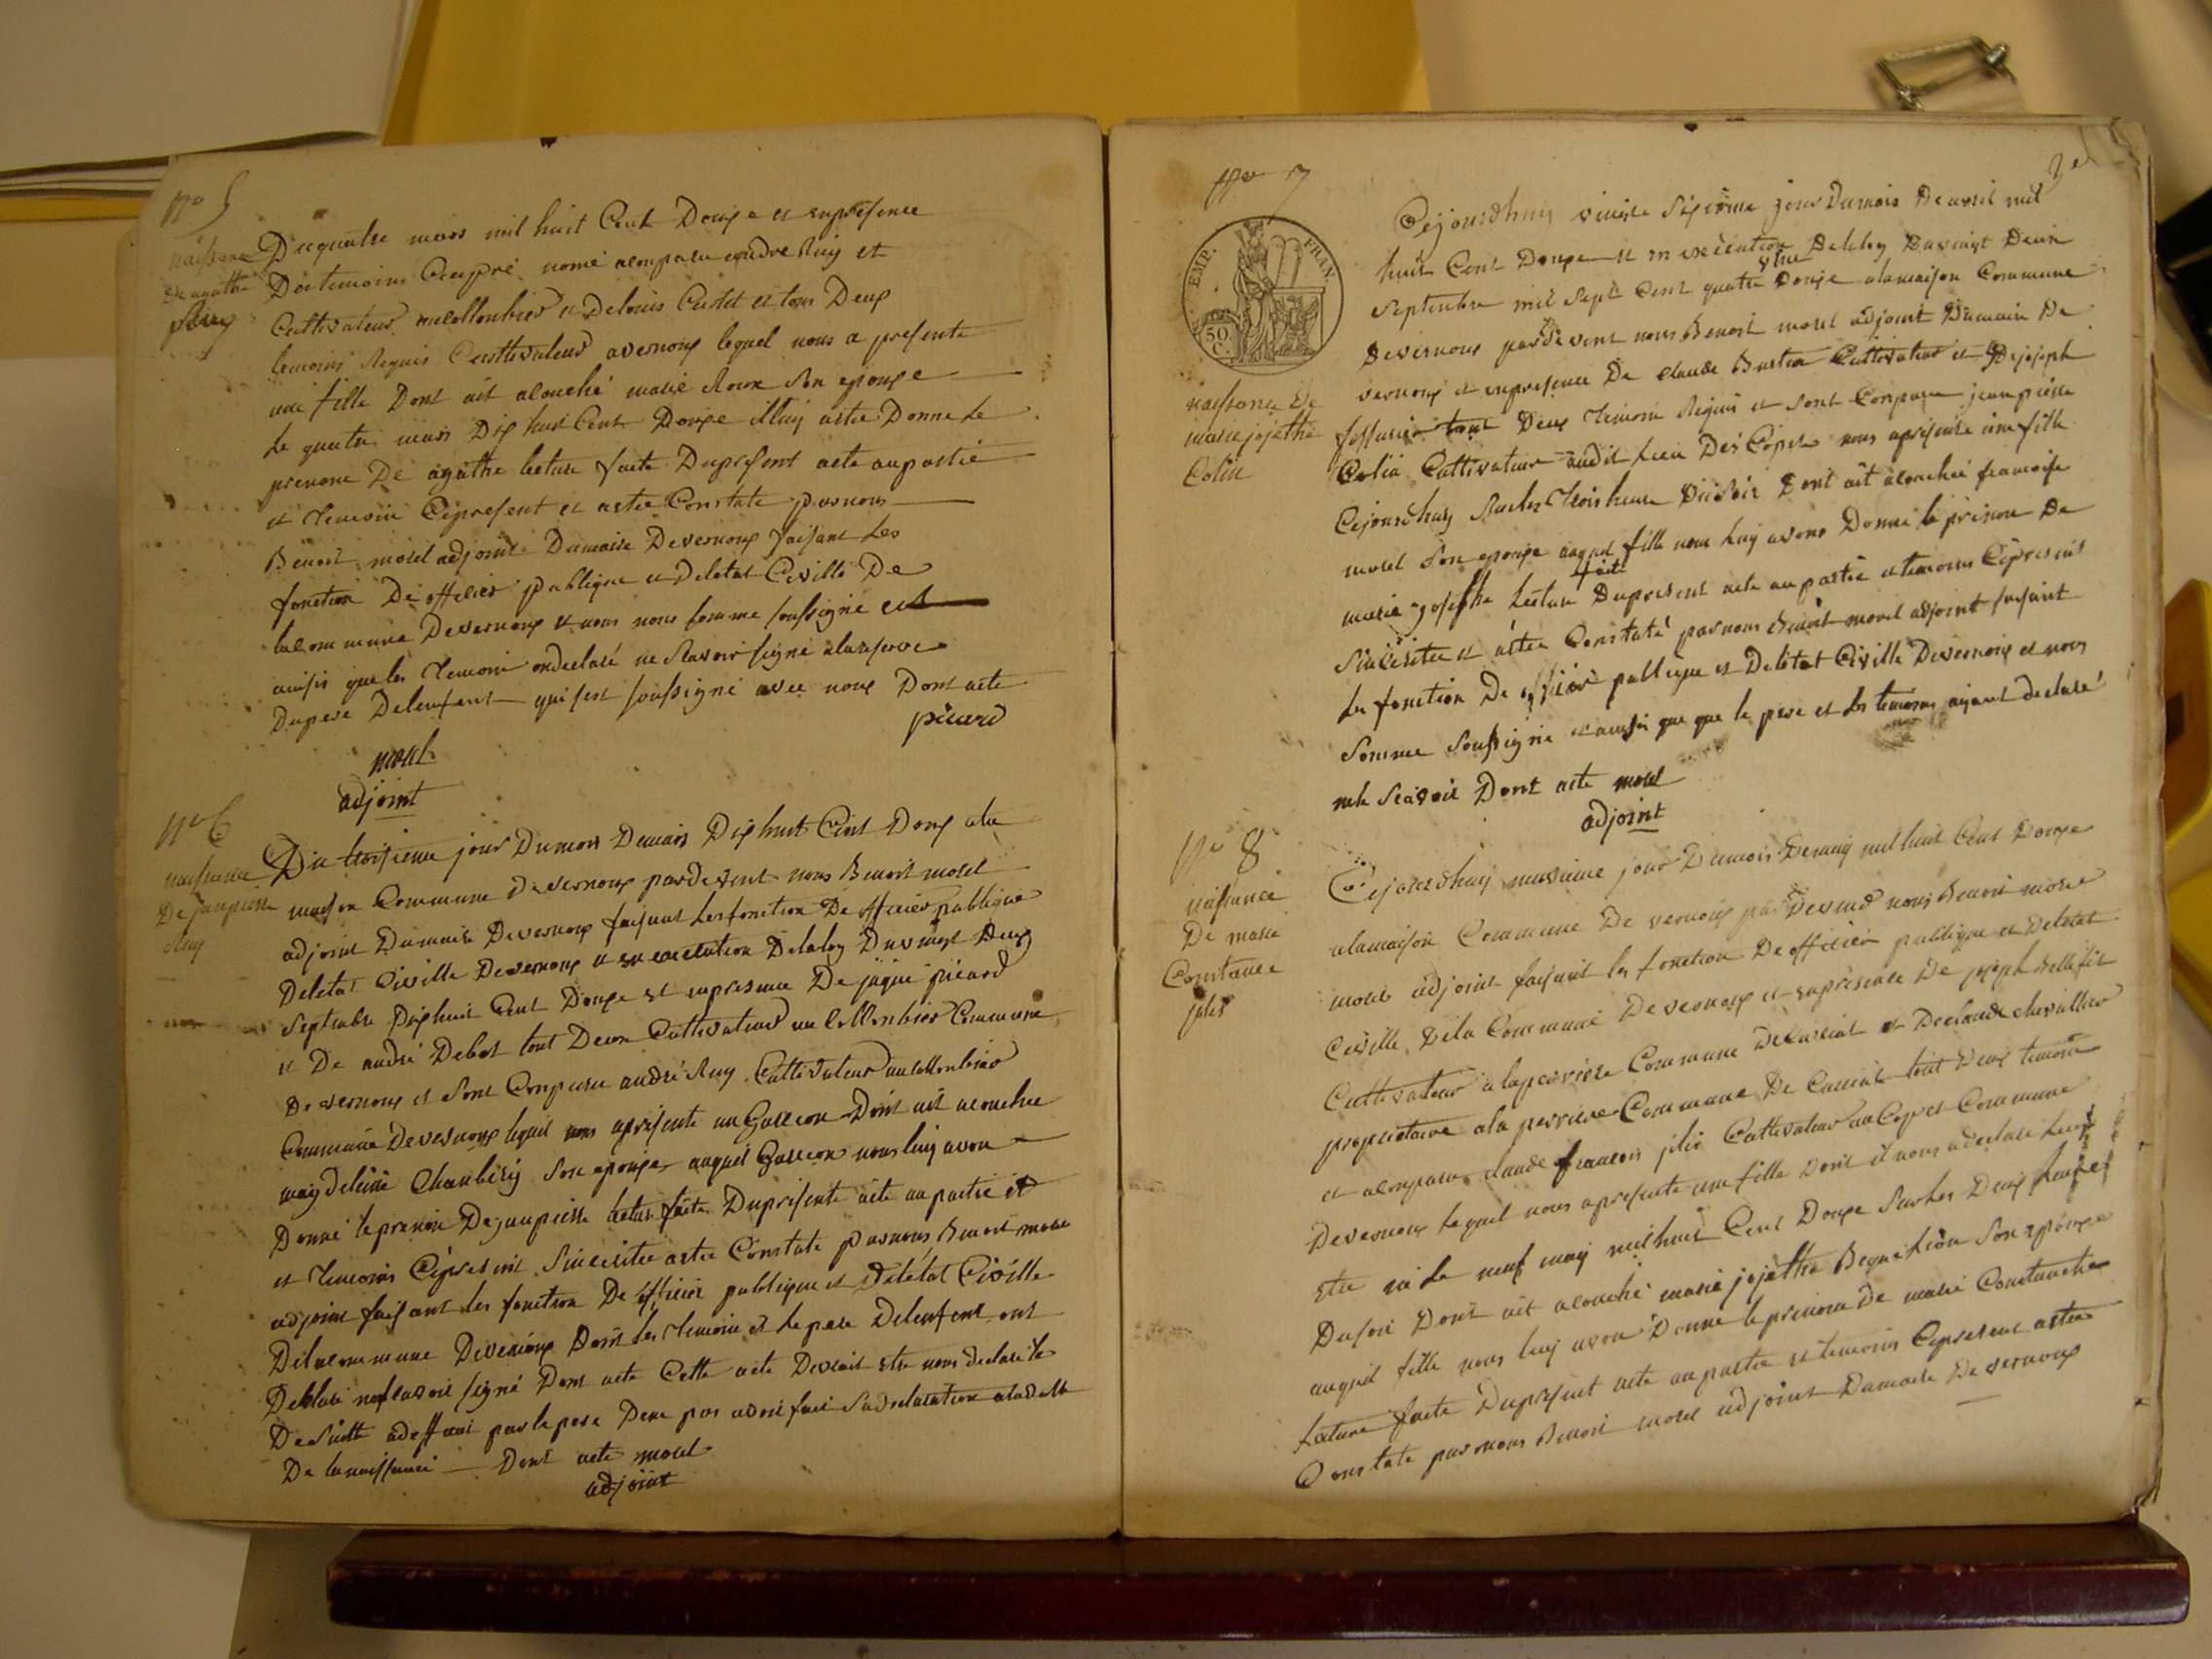 No 5
naissance
De agathe
Ruy
Du quatre mars mil huit Cent Douze et en presence
Des temoins Ci apré nomé a comparu andre Ruy et
Cultivateur au collombier et De louis Curtet et tous Deux
temoins Requis Cultivateur a vernoux lequel nous a presente
une fille Dont ait alouché marie Roux Son epouze
Le quatre mars Dix huit Cent Douze illuy a ete Donne Le
prenom De agathe lecture faite Du present acte au partie
et Temoin Ci present et a ete Constate par nous
Benoit morel adjoint Du maire De vernoux faisant Les
fonction De officier publique et De letat Civille De
la Commune De vernoux et nous nous Somme Soussigné
ainsis que les Temoin on declaré ne Savoir signé a la reserve
Du pere De lenfant qui sest soussigné avec nous Dont acte
picard
morel
adjoint
No 6
naissance
De jean pierre
Ruy
Du troisieme jour Du mois De mars Dix huit Cent Douz a la
maison Commune De vernoux par devent nous Benoit morel
adjoint Du maire De vernoux faisant Les fonction De officier publique
De letat Civille De vernoux et en execution De la loy Du vingt Deux
Septembre Dix huit Cent Douze et en presence De jaque picard
et De andré Debost tout Deux Cultivateur au Collonbier Commune
De vernoux et Sont Comparu andré Ruy Cultivateur au collonbier
Commune De vernoux lequel nous a presente un Garcon Dont ait acouchee
magdeleine Chanberij Son epouze auquel Garcon nous luy avon
Donné le prenom De jean pierre lecture faite Du presente acte au partie et
et Temoins Ci present Sincerite a ete Constate par nous Benoit morel
adjoint faisant les fonction De officier publique et De letat Civille
De la commune De vernoux Dont les Temoin et le pere De lenfent ont
Declaré ne scavoir signé Dont acte Cette acte Devrait etre
De Suitte par le pere De ne pas avoir fait Sa Declaration a la Datte
De la naissance Dont acte morel
adjoint
3e
No 7
EMP. FRAN.
50
C.
naissance De
marie josephe
Colin
Cejourdhuy vinte Sixieme jour Du mois De avril mil
huit Cent Douze et en execution De la loy Du vingt Deux
Septembre mil Sept Cent quatre Douze a la maison Commune
De vernoux par Devent nous Benoit morel adjoint Du maire De
vernoux et en presence De claude Cultivateur et De joseph
tout Deux Temoin Requis et Sont Conparu jean pierre
Colin Cultivateur audit Lieu Des Copet nous a presente une fille
Cejourdhuy Sur les Trois heure Du Soir Dont ait acouchee francoise
morel Son epouze auquel fille nous luy avons Donné le prenom De
marie josephe lecture faite Du present acte au partie et temoins Ci present
Sincerite et a ete Constaté par nous Benoit morel adjoint faisant
Les fonction De officier publique et De letat Civille De vernoux et nous
Somme Soussigné et ainsi que que le pere et les temoins ayant declaré
ne le Scavoir Dont acte morel
adjoint
No 8
naissance
De marie
Constance
Cejourdhuy neuvieme jour Du mois De may mil huit Cent Douze
a la maison Commune De vernoux par Devend nous Benoit morel
morel adjoint faisant les fonction De officier publique et De letat
Civille De la Commune De vernoux et en presence De joseph Bellefit
Cultivateur a la perriere Commune De Cuisiat et De claude chevallier
propriétaire a la perriere Commune De Cuisiat tout Deux temoin
et a comparu claude francois Cultivateur au Copet Commune
De vernoux Lequel nous a presente une fille Dont il nous a declaré
etre né Le neuf may mil huit Cent Douze Sur Les Deux heures
Du soir Dont ait acouché marie josephe Son epouze
auquel fille nous luy avon Donne le prenom De marie Constanche
Lecture faite Du present acte au partie et temoins Ci present a ete
Constate par nous Benoit morel adjoint Du maire De vernoux